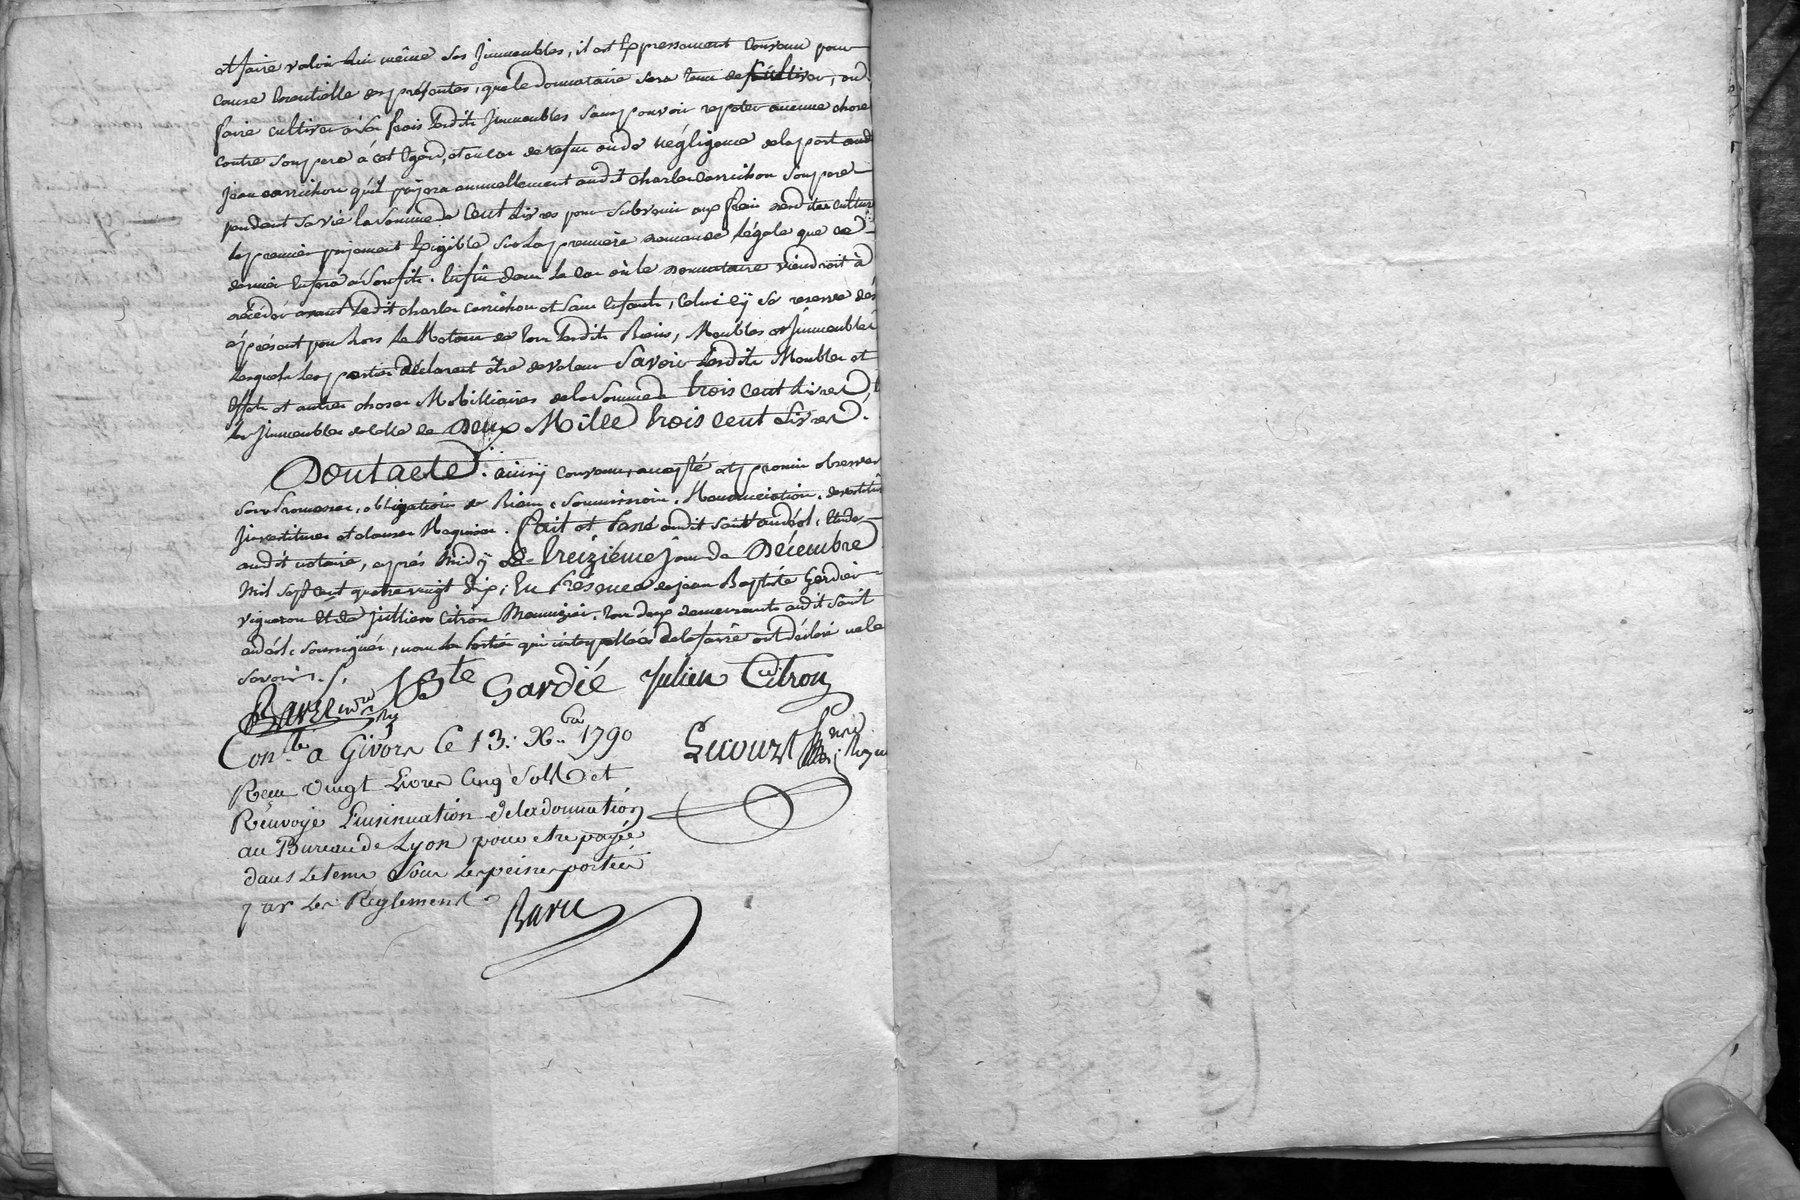 et faire valoir lui même ses Jmmeubles, il est Expressement Convenu pour
cause Essentielle des présentes, que le donnataire sera tenu de cultiver, ou
faire cultiver à ses frais lesdits Jmmeubles sans pouvoir repeter aucune chose
contre son pere à cet Egard, et en cas de refus ou de négligence de la part dud
Jean carrichon qu'il payera annuellement audit charles carrichon son pere
pendant sa vie la somme de Cent Livres pour subvenir aux frais desdites cultures
le premier payement Exigible sur la premiere demande légale que ce
dernier En fera à son fils. Enfin dans le cas où le donnataire viendroit à
décéder avant ledit charles carrichon et sans Enfants, Celui cy se reserve dès
à présent pour lors le Retour de tous lesdits Biens, Meubles et Jmmeubles
lesquels les parties déclarent être de valeur Savoir lesdits Meubles et
Effets et autres choses Mobilliaires de la somme de trois cent Livres,
les Jmmeubles de celle de Deux Mille trois cent Livres.
Dont acte. ainsy convenu, accepté et promis observer
sous Promesses, obligation de Biens, Soummission, Renonciation, devestiture
Jnvestiture et clauses Requises. fait et Passé audit saint andéol, Etude
dudit notaire, après midy Le treizième jour de Décembre
mil sept cent quatre vingt dix, En Présence de jean Baptiste Gardier
vigneron et de Jullien Citron Menuizier, tous deux demeurants audit saint
andéol, soussignés, non les Parties qui interpellées de le faire ont déclaré ne le
savoir.
JBte Gardié Julien Citron
Con.lé a Givors Le 13. Xbre 1790 Lecourt
Reçu vingt Livres Cinq Sols et
Renvoyé L'insinuation de la donnation
au Bureau de Lyon pour etre payée
dans Le tems Sous Les peines portées
par Les Reglemens